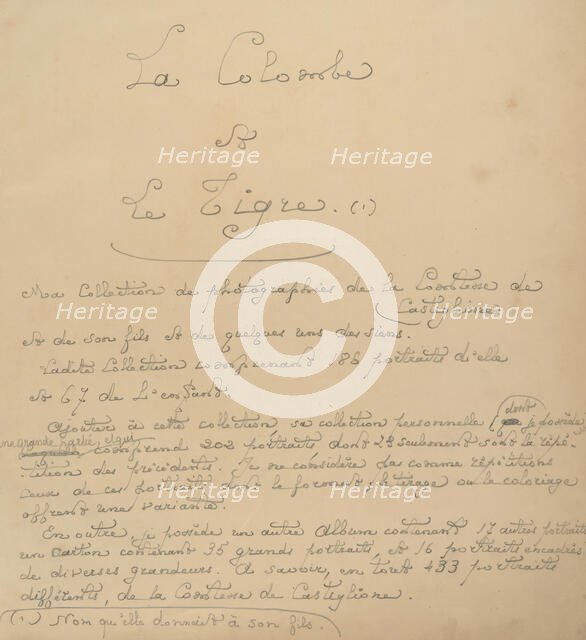 La Colombe
et
Le Tigre. (1)
Ma Collection de photographies de la Comtesse de
Castiglione
et de son fils et de quelques uns des siens.
Ladite Collection comprenant 186 portraits d'elle
et 67 de L'enfant.
Ajouter à cette collection, sa collection personnelle (dont je possède
une grande partie, et qui comprend 202 portraits dont 22 seulement sont la répé-
tition des précédents. Je ne considère pas comme répétitions
ceux de ces portraits dont le format, le tirage ou le coloriage
offrent une variante.
En outre, je possède un autre Album contenant 17 autres portraits
un carton contenant 35 grands portraits, et 16 portraits encadrés
de diverses grandeurs. A savoir, en tout 433 portraits
différents, de la Comtesse de Castiglione.
(1) Nom qu'elle donnait à son fils.
Heritage Heritage
Heritage Heritage
Heritage Heritage
Heritage Heritage